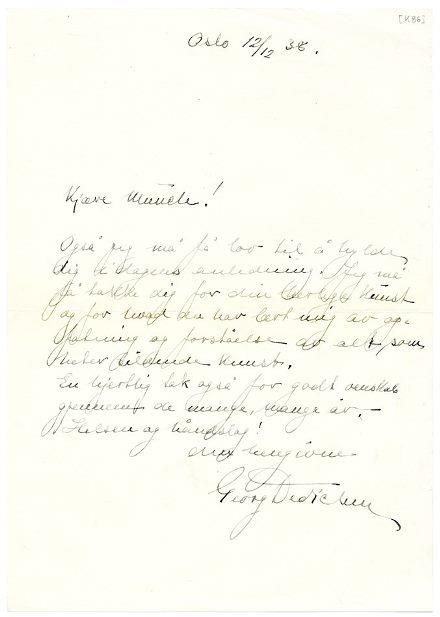 [K86]
Oslo 12/12 38.
Kjære Munch!
Også jeg må få lov til å hylde
dig i dagens anledning. Jeg må
få takke dig for din herlige kunst
og for hvad du har lært mig av op-
fatning og forståelse av alt som
heter bildende kunst.
En hjertlig tak også for godt venskab
gjennem de mange, mange år.
Hilsen og håndslag!
din hengivne
Georg Dedichen